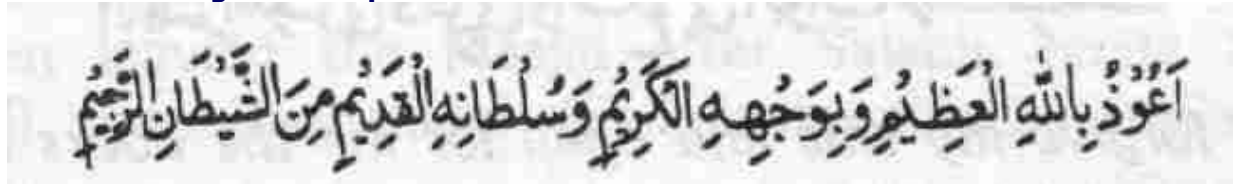 اَعُوْذُ بِاللّٰهِ الْعَظِيْمِ وَ بِوَجْهِهِ الْكَرِيْمِ وَسُلْطَانِهِ الْقَدِيْمِ مِنَ الشَّيْطَانِ الرَّجِيْمِ